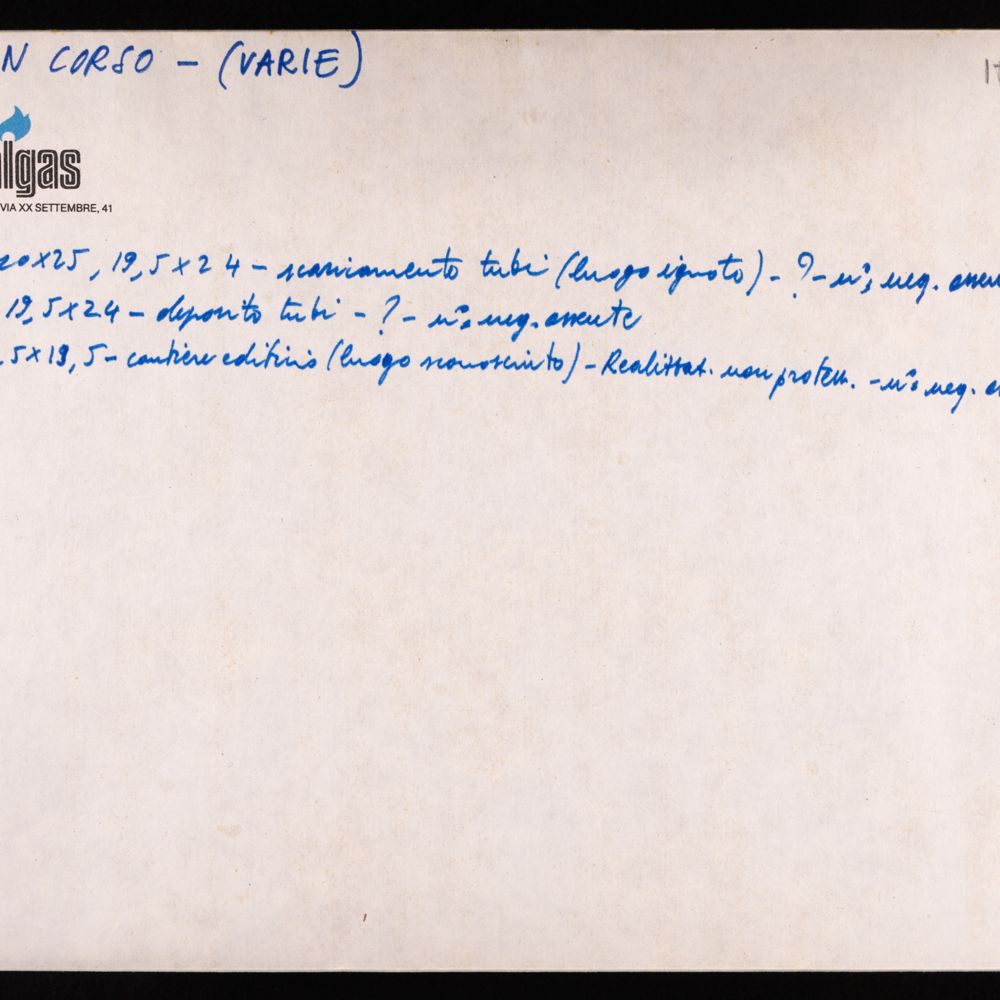 N CORSO - (VARIE)
17
lgas
VIA XX SETTEMBRE, 41
20x25, 19,5x24 - scaricamento tubi (luogo ignoto) - ? - n° neg.
19,5x24 - deposito tubi - ? - n° neg. assente
5x19,5 - cantiere edilizio (luogo sconosciuto) - Realizzaz. non protem. - n° neg.